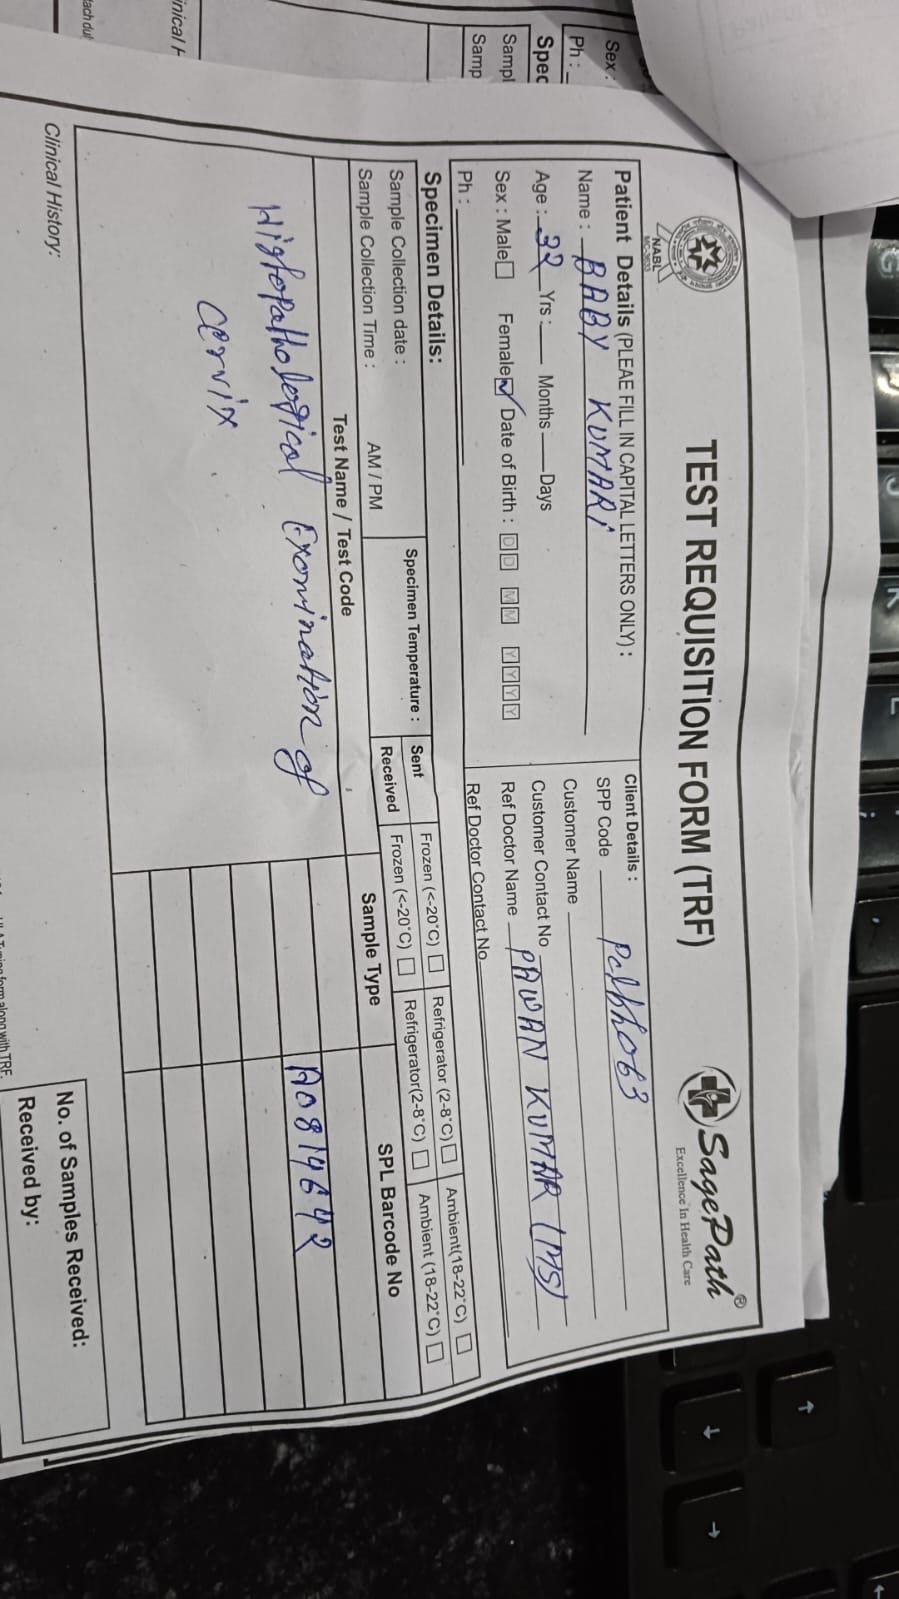 TEST REQUISITION FORM (TRF)
NABL
SagePath®
Excellence In Health Care
Patient Details (PLEAE FILL IN CAPITAL LETTERS ONLY) :
Name : BABY KUMARI
Age : 32 Yrs : Months Days
Sex : Male Female Date of Birth : D D M M Y Y Y Y
Ph :
Client Details :
SPP Code
Customer Name
Customer Contact No
Ref Doctor Name PAWAN KUMAR (MS)
Ref Doctor Contact No
Specimen Details:
Sample Collection date :
Sample Collection Time : AM / PM
Specimen Temperature :
Sent Frozen (<-20°C) Refrigerator (2-8°C) Ambient(18-22°C)
Received Frozen (<-20°C) Refrigerator(2-8°C) Ambient (18-22°C)
Test Name / Test Code Sample Type SPL Barcode No
Histopathological Examination of
cervix
A0814642
Clinical History:
No. of Samples Received:
Received by:
form along with TRF.
Sex :
Ph :
Spec
Sampl
Samp